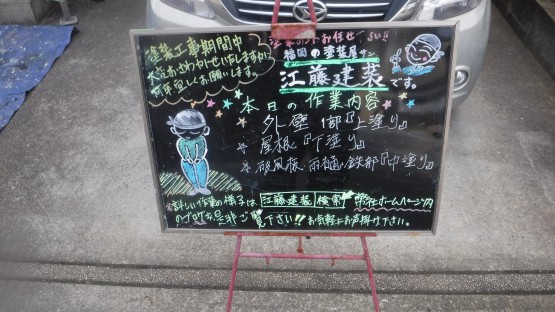 塗装工事期間中
大変おさわがせいたしますが
何卒宜しくお願います。
お任せ
福岡の塗装屋サン
江藤建装
です。
本日の作業内容
外壁1部『上塗り』
屋根『下塗り』
破風板・雨樋・鉄部『中塗り』
※詳しい作業の様子は 江藤建装 検索 弊社ホームページ内
のブログを是非ご覧下さい!!お気軽にお声掛け下さい。